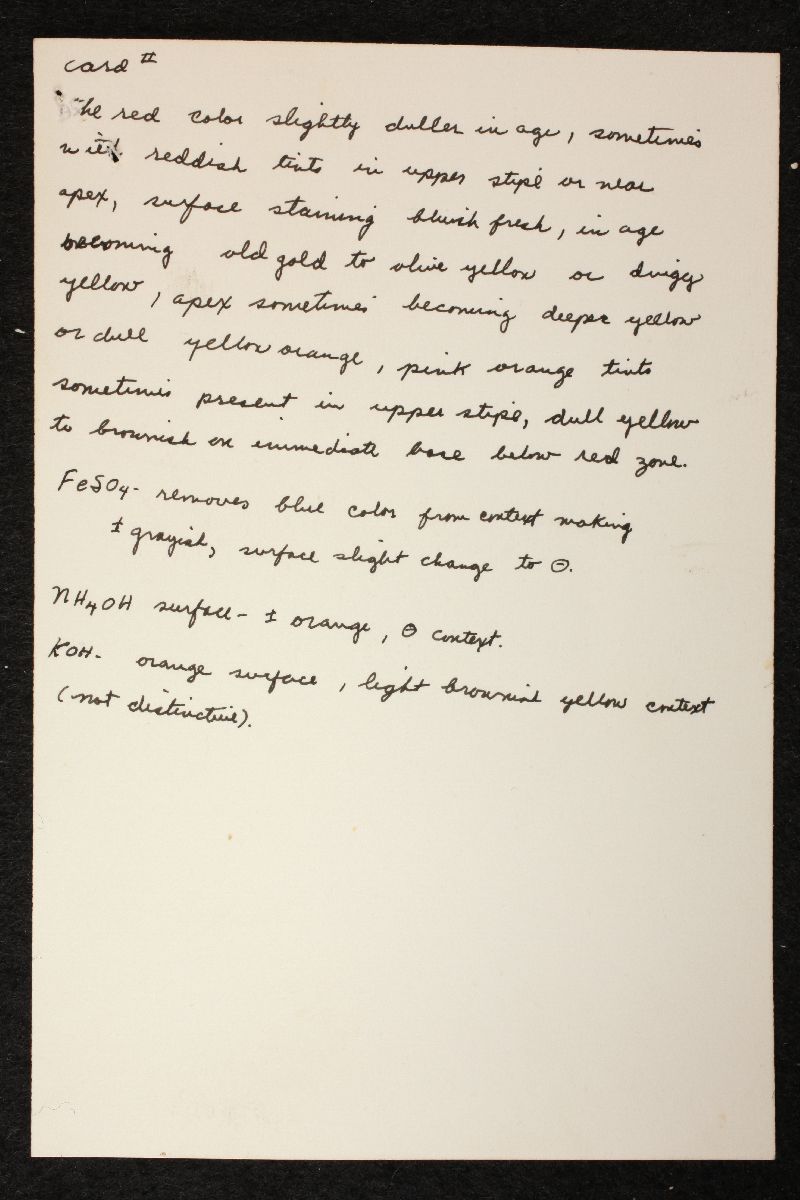 card II
The red color slightly duller in age, sometimes
with reddish tints in upper stipe or near
apex, surface staining bluish fresh, in age
becoming old gold to olive yellow or dingy
yellow, apex sometimes becoming deeper yellow
or dull yellow orange, pink orange tints
sometimes present in upper stipe, dull yellow
to brownish on immediate base below red zone.
FeSO4- removes blue color from context making
± grayish, surface slight change to ⊖.
NH4OH surface- ± orange, ⊖ context.
KOH- orange surface, light brownish yellow context
(not distinctive).